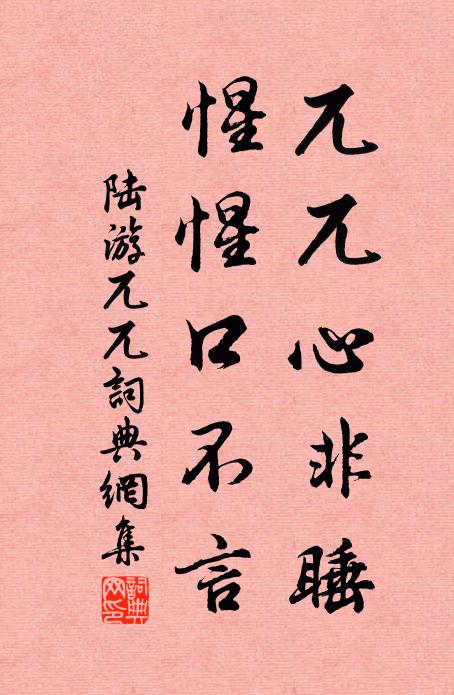 兀兀心非睡
惺惺口不言
陆游兀兀詞典網集
詞典
网印